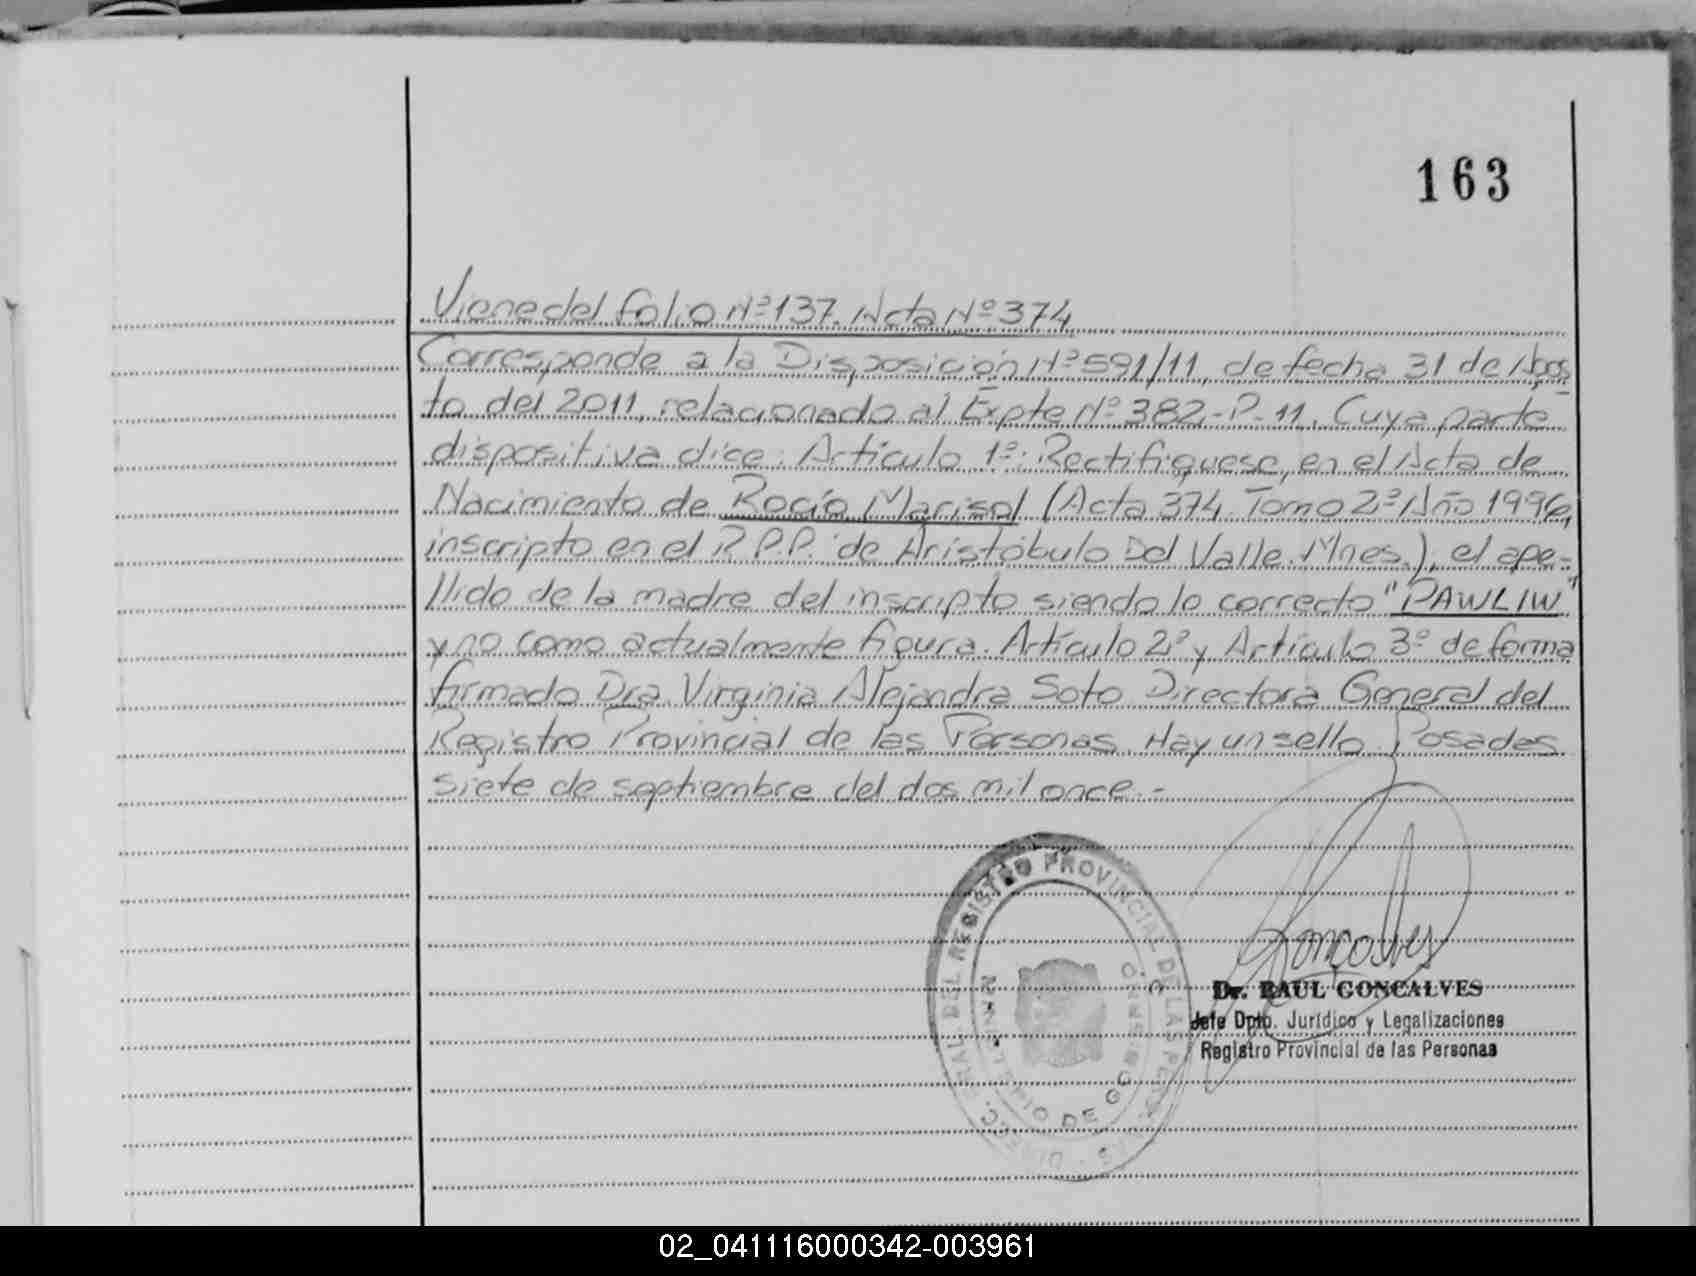 163
Viene del folio Nº 137. Acta Nº 374
Corresponde a la Disposición Nº 591/11, de fecha 31 de Agos
to del 2011, relacionado al Expte Nº 382-P-11, Cuya parte
dispositiva dice: Artículo 1º: Rectifiquese, en el Acta de
Nacimiento de Rocío Marisol (Acta 374 Tomo 2º Año 1996,
inscripto en el R.P.P. de Aristóbulo Del Valle. Mnes.), el ape-
llido de la madre del inscripto siendo lo correcto "PAWLIW"
y no como actualmente figura. Artículo 2º y Artículo 3º de forma
firmado Dra. Virginia Alejandra Soto Directora General del
Registro Provincial de las Personas. Hay un sello. Posadas
siete de septiembre del dos mil once.-
DEL REGISTRO PROVINCIAL DE LAS
Goncalves
Dr. RAUL GONCALVES
Jefe Dpto. Jurídico y Legalizaciones
Registro Provincial de las Personas
02_041116000342-003961